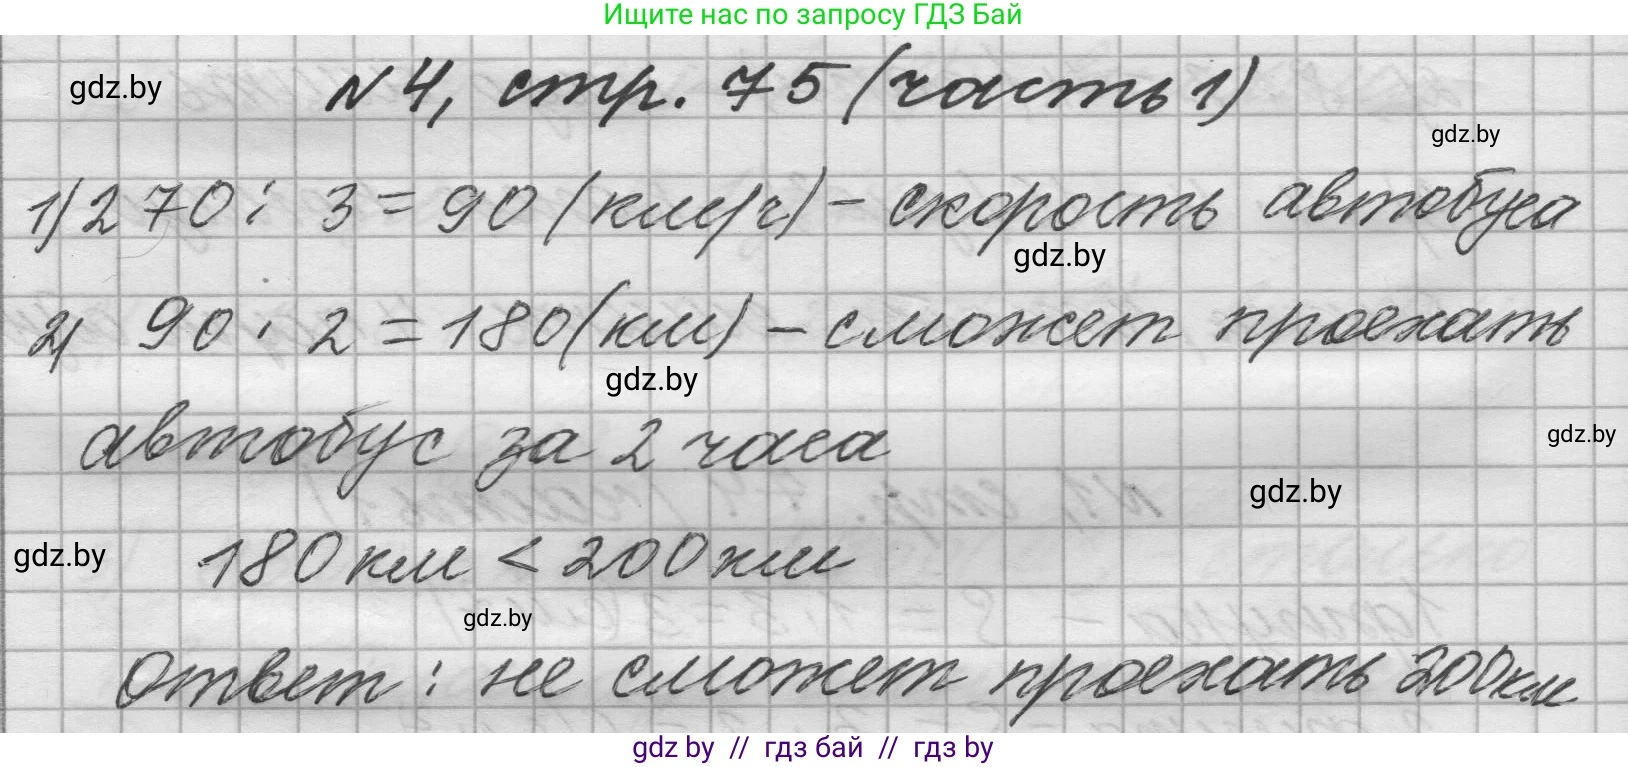 Ищите нас по запросу ГДЗ Бай
gdz.by
№4, стр. 75 (часть 1)
gdz.by
1) 270 : 3 = 90 (км/ч) – скорость автобуса
gdz.by
2) 90 · 2 = 180 (км) – сможет проехать
gdz.by
автобус за 2 часа
gdz.by
gdz.by
gdz.by
180 км < 200 км
gdz.by
Ответ: не сможет проехать 200 км
gdz by // гдз бай // гдз by